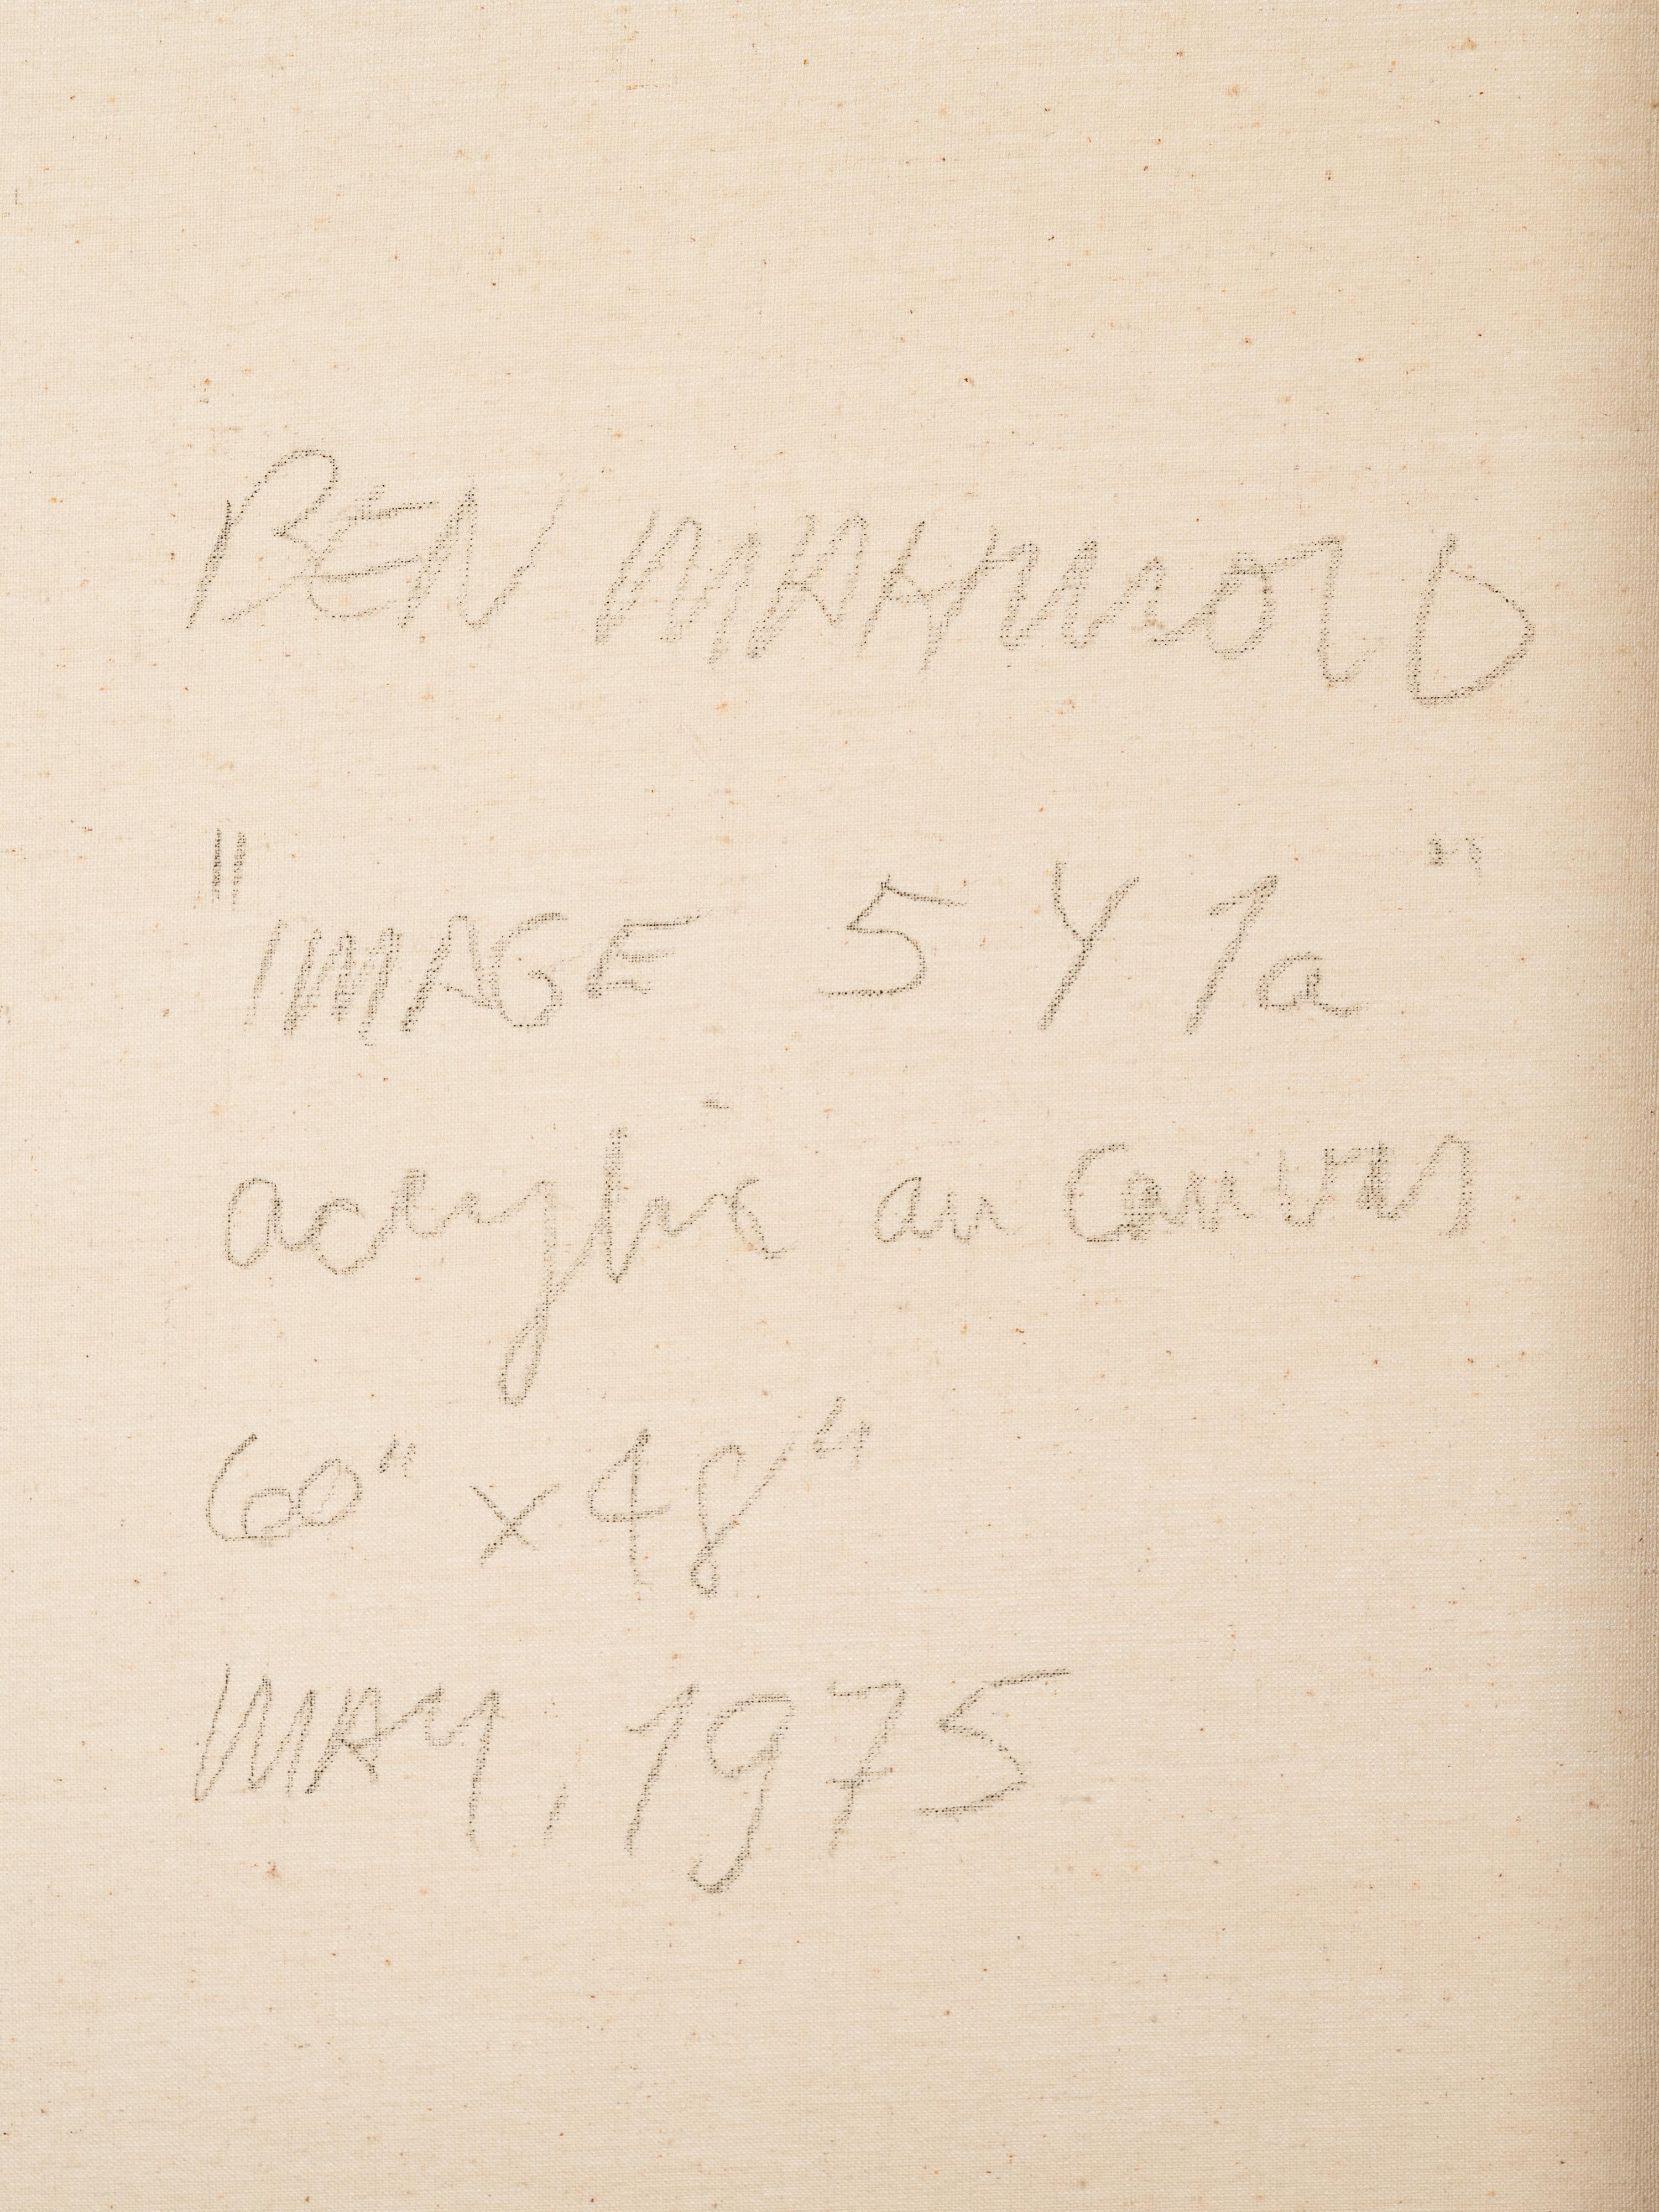 BEN MAHMOUD
"IMAGE 5 Y 1a"
acrylic on canvas
60" x 48"
MAY, 1975